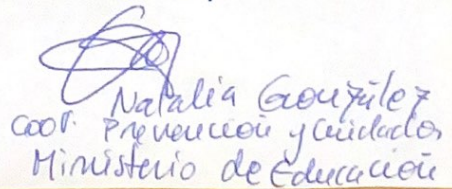 Natalia González
Coor. Prevención y Cuidados
Ministerio de Educación